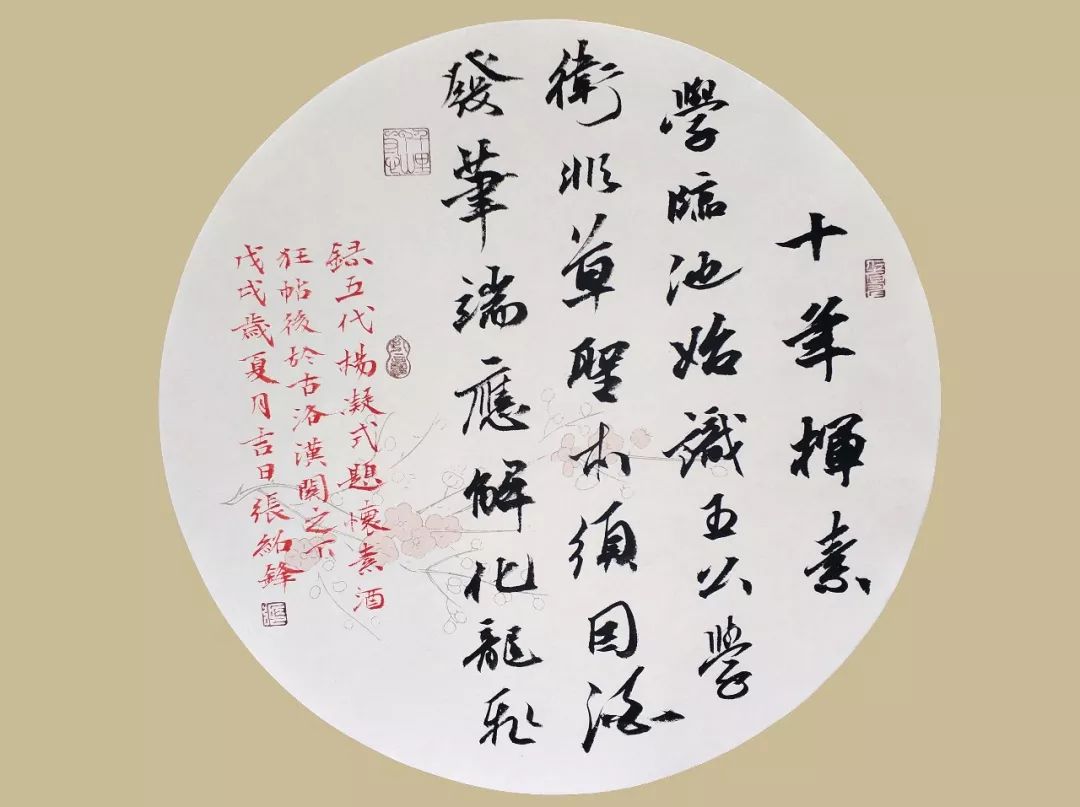 十年揮素
學臨池始識王公學
衛非草聖未須因酒
發筆端應解化龍飛
録五代楊凝式題懷素酒
狂帖後於古洛漢關之下
戊戌歲夏月吉日張紹鋒